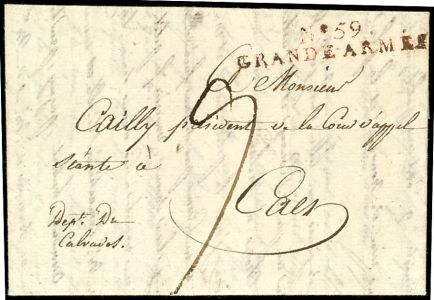 Nº 59.
GRANDE ARMÉE
A Monsieur
Cailly président de la Cour d'appel
séante à
Caen
Dept. Du
Calvados.